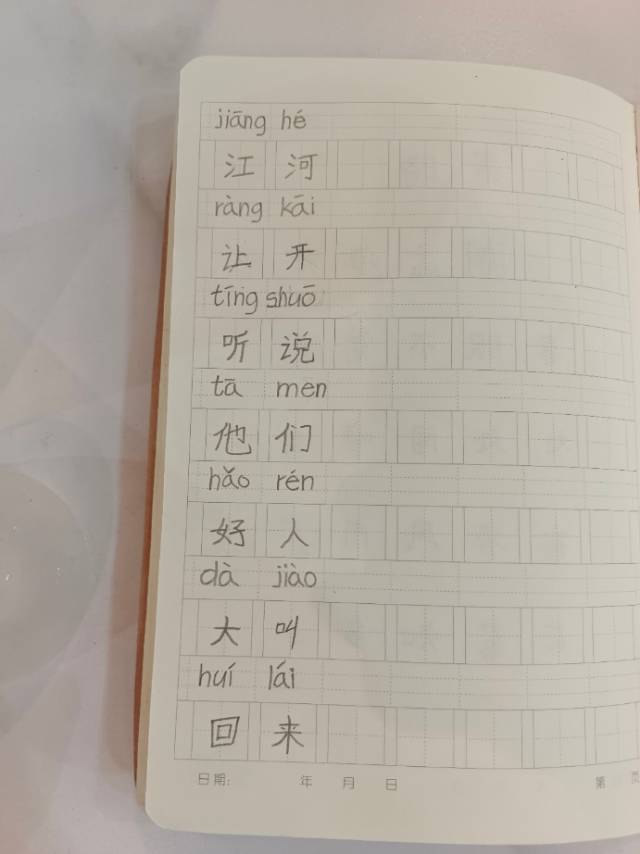 jiāng hé
江 河
ràng kāi
让 开
tīng shuō
听 说
tā men
他 们
hǎo rén
好 人
dà jiào
大 叫
huí lái
回 来
日期: 年 月 日 第 页